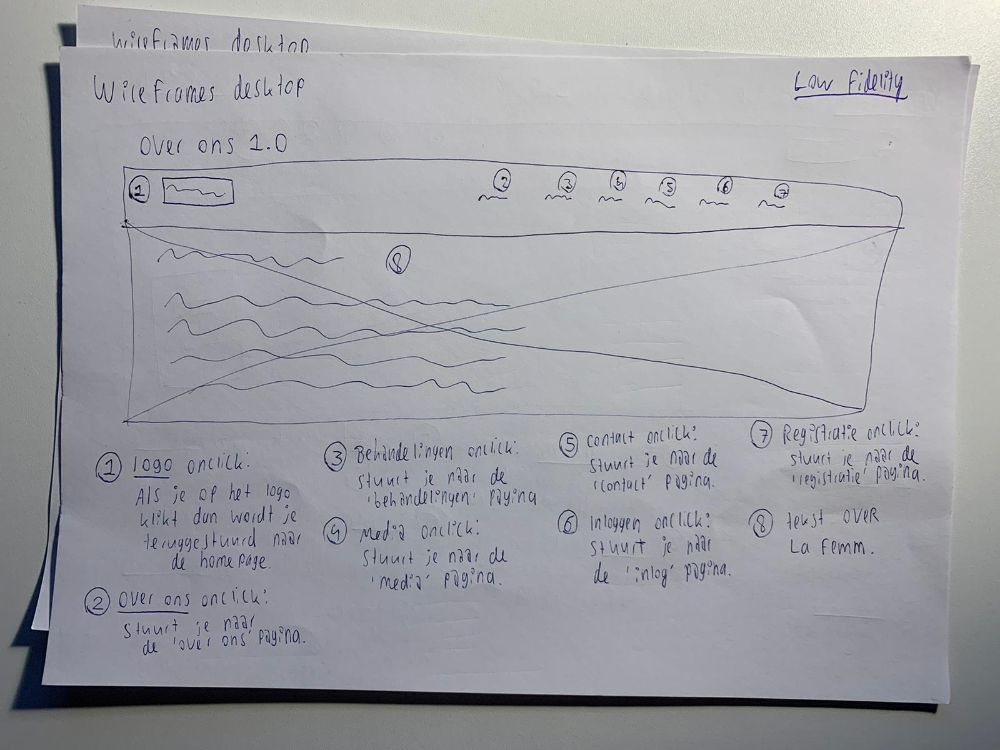 wireframes desktop
Wireframes desktop
Low Fidelity
Over ons 1.0
1
2 3 4 5 6 7
8
1 logo onclick:
Als je op het logo
klikt dan wordt je
teruggestuurd naar
de homepage.
2 Over ons onclick:
Stuurt je naar
de 'over ons' pagina.
3 Behandelingen onclick:
Stuurt je naar de
'behandelingen' pagina
4 Media onclick:
Stuurt je naar de
'media' pagina.
5 Contact onclick:
Stuurt je naar de
'contact' pagina.
6 Inloggen onclick:
Stuurt je naar
de 'inlog' pagina.
7 Registratie onclick:
stuurt je naar de
'registratie' pagina.
8 tekst over
La Femm.